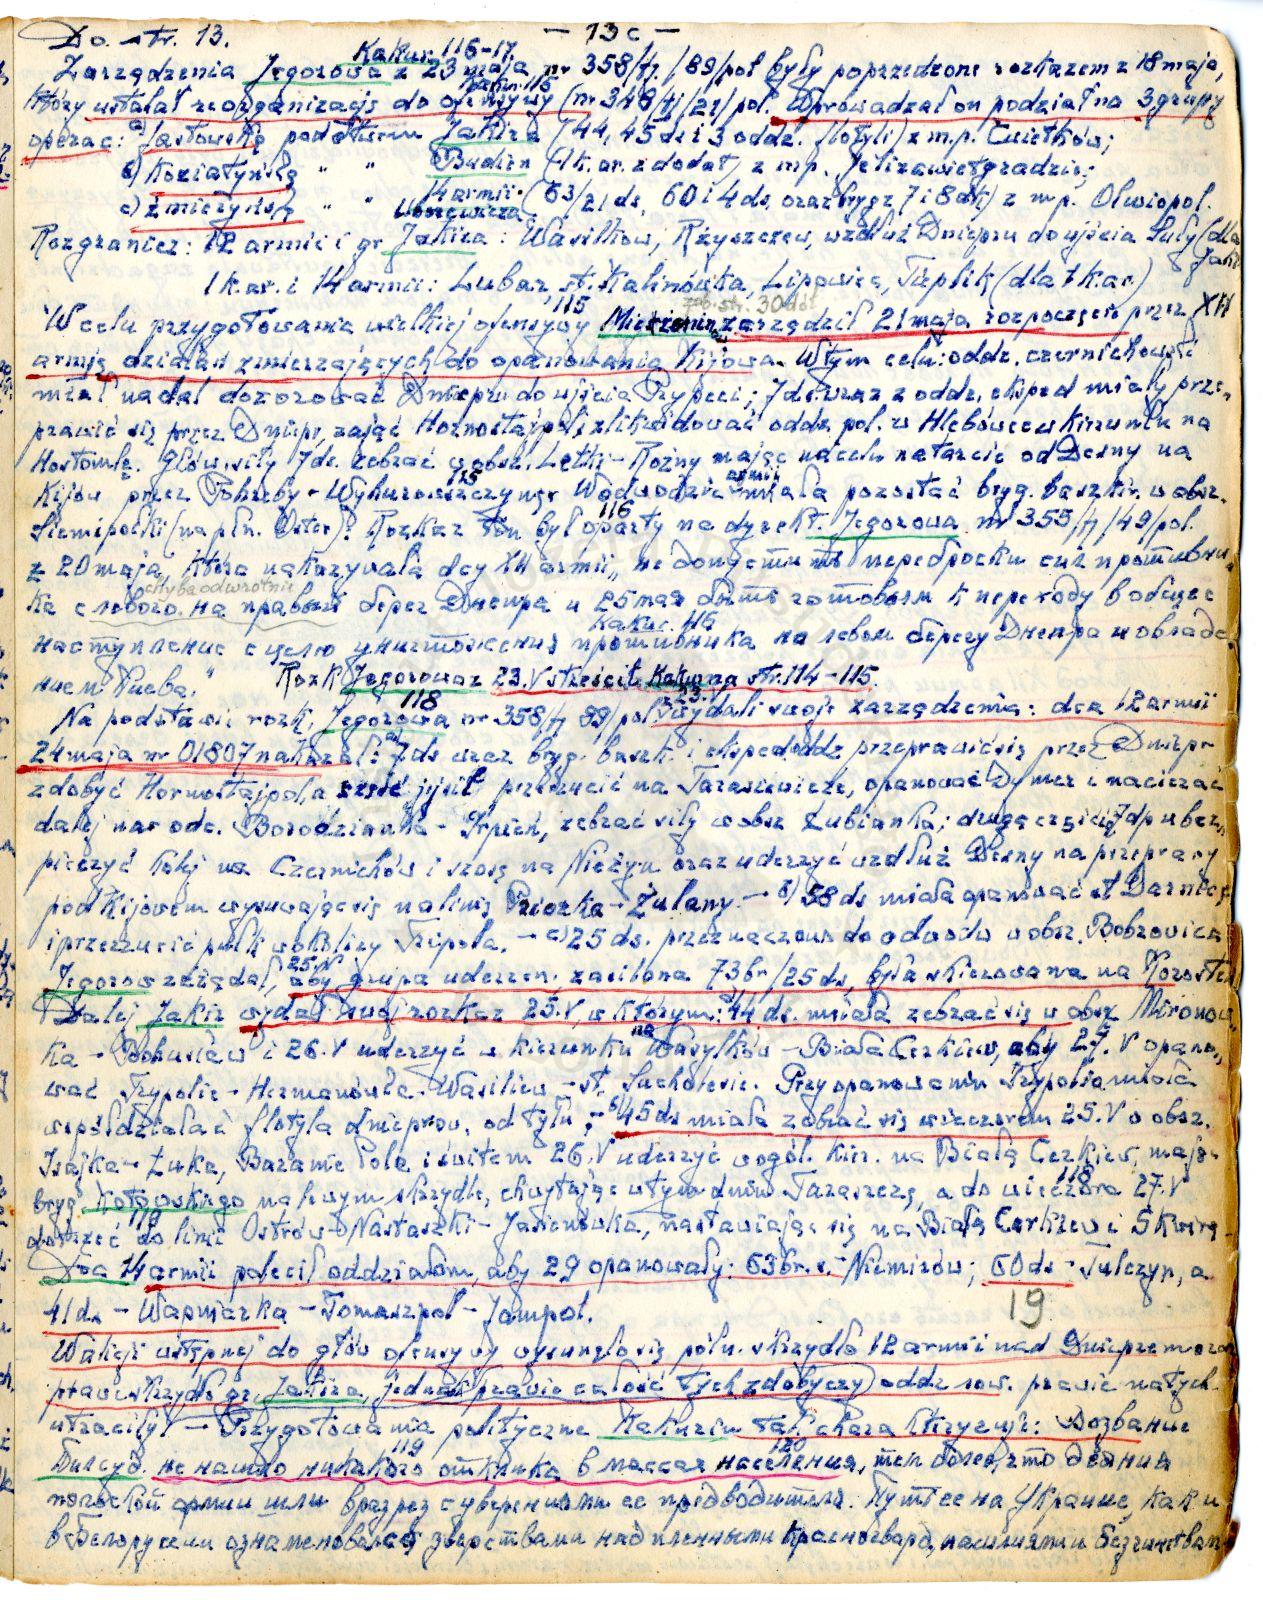 Do str. 13.
— 13c —
Kakur. 116-17
Zarządzenia Jegorowa z 23 maja nr 358/tj./89/pol były poprzedzone rozkazem z 18 maja,
Kakur. 115
który ustalał reorganizację do ofensywy (nr 348/tj/21/pol. Wprowadzał on podział na 3 grupy
operac: a) Fastowską pod dctwem Jakira (44, 45 ds i 3 oddz. flotyli) z m.p. Cwietków;
b) Koziatyńską " " Budien (1 k. ar. z dodat, z m.p. Jelizawietgradzie;
c) Żmieryńską " " 14 armii (63/21 ds, 60 i 41 ds, oraz bryg z 7 i 8 ) z m.p. Olwiopol.
Uborewicza
Rozgranicz: 12 armii i gr Jakira: Wasilków, Rżyszczew, wzdłuż Dniepru do ujścia Suły (dla
Jak
1 k.ar. i 14 armii: Lubar, st. Kalinówka, Lipowiec, Teplik (dla 1 k.ar)
115 30
W celu przygotowania wielkiej ofensywy Mieżeninow zarządził 21 maja rozpoczęcie przez XII
armię działań zmierzających do opanowania Kijowa. W tym celu: oddz. czernichowski
miał nadal dozorować Dniepru do ujścia Prypeci; 7 ds wraz z oddz. eksped miały prze-
prawić się przez Dniepr, zająć Hornostajpol, zlikwidować oddz. pol. w Hlebówce w kierunku na
Hostomlę. Główn. siły 7 ds. zebrać w obsz. Letki - Rożny mając na celu natarcie od Desny na
115 armii
Kijów przez Pohreby - Wyhurowszczyznę. W odwodzie miała pozostać bryg. baszkir. w obsz.
116
Siemipołki (na płn. Oster). Rozkaz ten był oparty na dyrekt. Jegorowa nr 355/tj/49/pol.
z 20 maja, która nakazywała dcy XII armii „не допустить переброски сил противни-
chyba odwrotnie
ка с левого на правый берег Днепра и 25 мая быть готовым к переходу в общее
Kakur. 116
наступление с целью уничтожения противника на левом берегу Днепра и овладе-
нием Киева." Rozk Jegorowa z 23.V streścił Kakur na str. 114-115.
118 23.V
Na podstawie rozk. Jegorowa nr 358/tj 89/pol wydali swoje zarządzenia: dca 12 armii
24 maja nr 01807 nakazał: a) 7 ds wraz bryg. baszk. i eksped oddz przeprawić się przez Dniepr
zdobyć Hornostajpol, a część jej sił przerzucić na Tarasiewicze, opanować Dymer i nacierać
dalej na rodc. Borodzianka - Irpień, zebrać siły w obsz Łubianka; drugą częścią 7 dp ubez-
pieczyć kolej na Czernichów i szosę na Nieżyn oraz uderzyć wzdłuż Desny na przeprawy
pod Kijowem wysuwając się na linię Priorka - Żulany. — b) 58 ds miała opanować st Darnicę
i przerzucić pułki w okolicy Tripola. — c) 25 ds. przeznaczona do odwodu w obsz. Bobrowica
25.V
Jegorow zażądał, aby grupa uderzen. zasilona 73 br/25 ds, była skierowana na Korosteń
Dalej Jakir wydał swój rozkaz 25.V, w którym: a) 44 ds. miała zebrać się w obsz Mironow-
ka - Bohusław i 26.V uderzyć w kierunku na Wasylków - Biała Cerkiew, aby 27.V opano-
wać Trypolie - Hermanówka - Wasiliew - st. Sucholesie. Przy opanowaniu Trypolia miała
współdziałać flotyla dnieprow. od tyłu; — b) 45 ds miała zebrać się wieczorem 25.V w obsz.
Isajka - Łuka, Baranie Pole i świtem 26.V uderzyć w ogól. kier. na Białą Cerkiew, mając
118
bryg. Kotowskiego na lewym skrzydle, chwytając w tym dniu Taraszczę, a do wieczora 27.V
119
dotrzeć do linii Ostrów - Nastaszki - Jasienówka, nastawiając się na Białą Cerkiew i Skwirę
Dca 14 armii polecił oddziałom, aby 29 opanowały: 63 br. s. - Niemirów; 60 ds - Tulczyn, a
41 ds - Wapniarka - Tomaszpol - Jampol.
19
W akcji wstępnej do głów ofensywy wysunęło się półn. skrzydło 12 armii nad Dnieprem oraz
prawe skrzydło gr. Jakira, jednak (prawie całość tych zdobyczy) oddz sow. prawie natych.
utraciły — Przygotowania polityczne Kakurin tak charakteryzuje: Воззвание
119 120
Пилсуд. не нашло никакого отклика в массах населения, тем более, что деяния
польской армии шли вразрез с уверениями ее предводителя. Путь ее на Украине, как и
в Белоруссии ознаменовался зверствами над пленными красногвард, насилиями и безчинствам